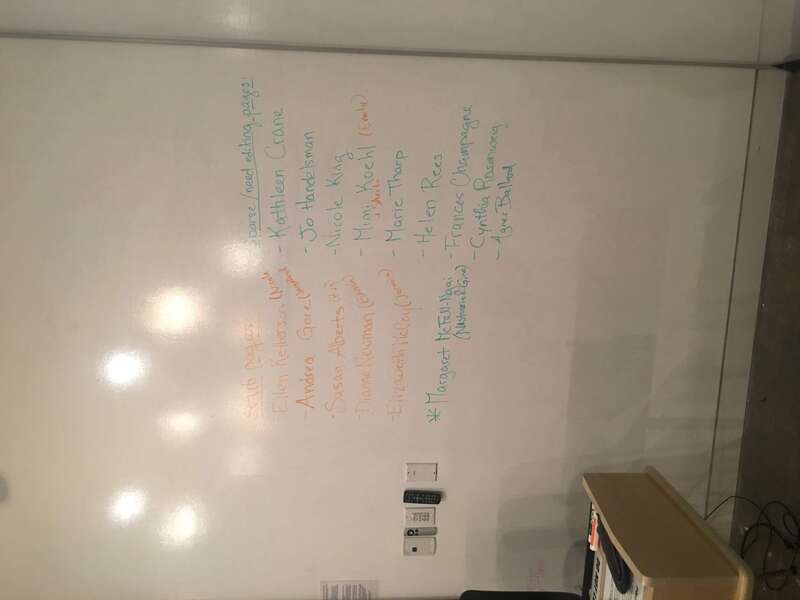 Stub pages:
- Ellen Ketterson
- Andrea Gore
- Susan Alberts
- Dianne Newman
- Elizabeth McCoy
* Margaret McFall-Ngai
sparse/need editing pages:
- Kathleen Crane
- Jo Handelsman
- Nicole King
- Mimi Koehl (Emily)
- Marie Tharp
- Helen Rees
- Frances Champagne
- Cynthia
- Agnes Ballard